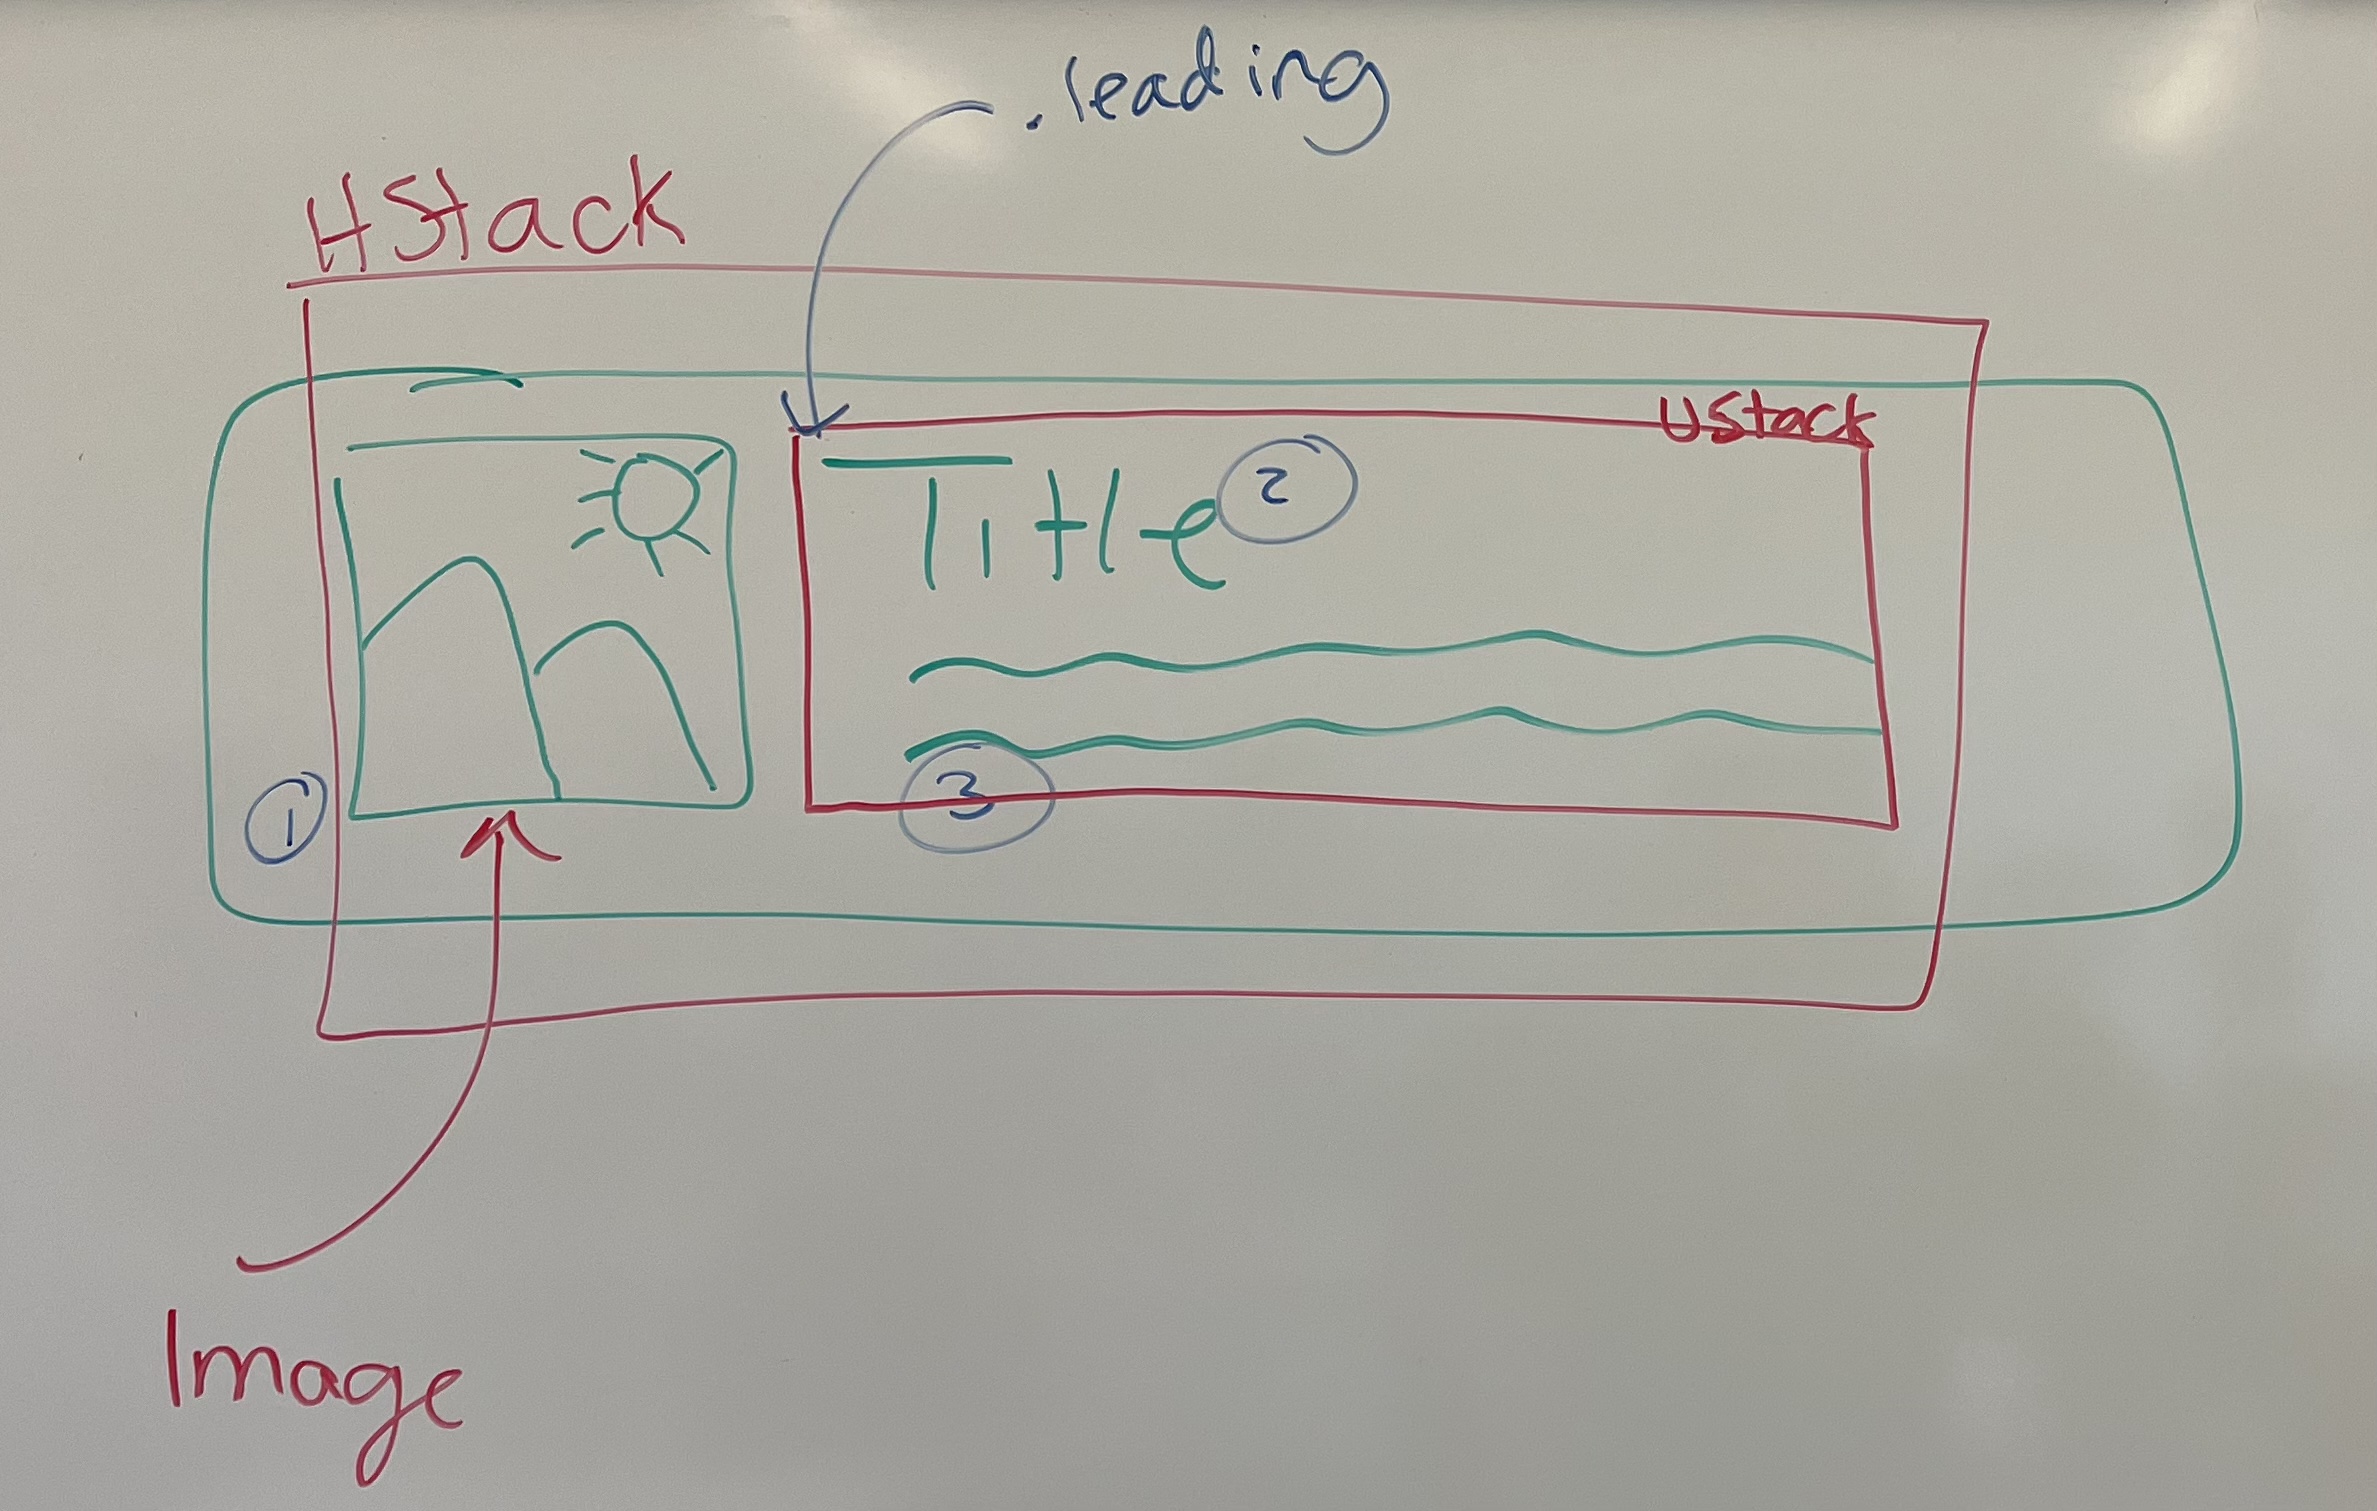 .leading
HStack
VStack
Title
2
1
3
Image